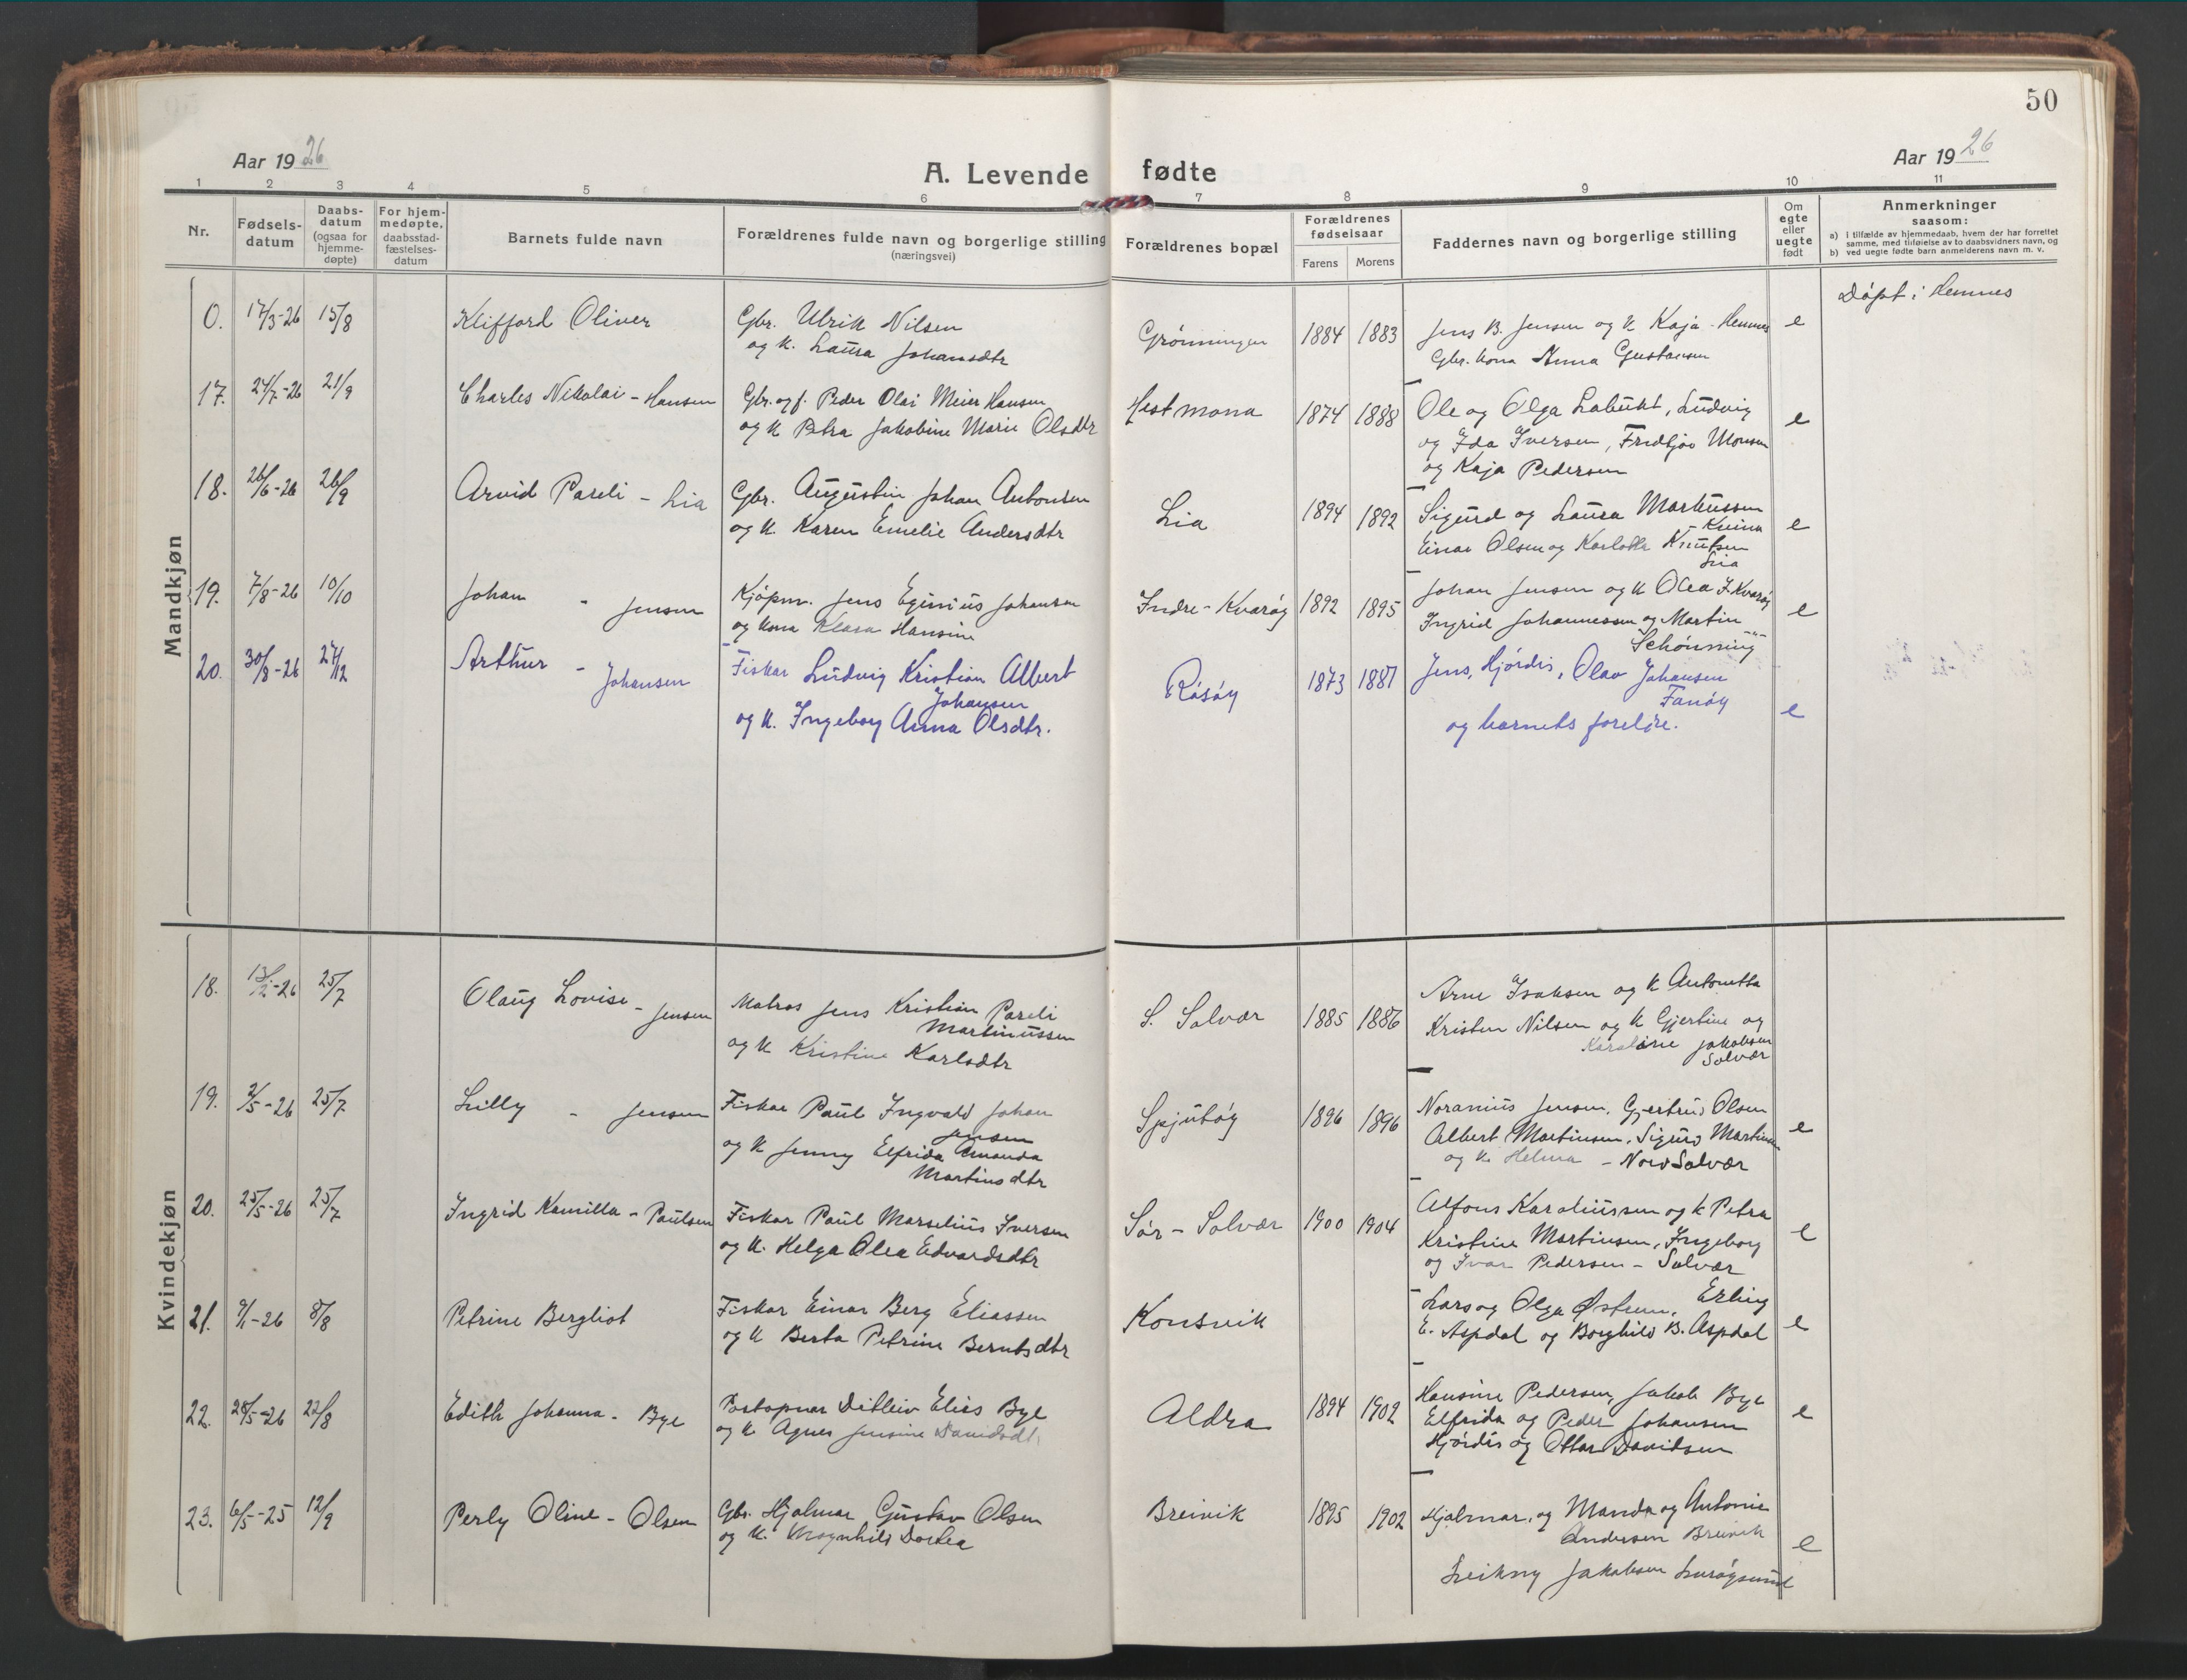 50
Aar 1926
A. Levende fødte
Aar 1926
1 2 3 4 5 6 7 8 9 10 11
Nr.
Fødsels-
datum
Daabs-
datum
(ogsaa for
hjemme-
døpte)
For hjem-
medøpte,
daabsstad-
fæstelses-
datum
Barnets fulde navn
Forældrenes fulde navn og borgerlige stilling
(næringsvei)
Forældrenes bopæl
Forældrenes
fødselsaar
Farens Morens
Faddernes navn og borgerlige stilling
Om
egte
eller
uegte
født
Anmerkninger
saasom:
a) i tilfælde av hjemmedaab, hvem der har forrettet
samme, med tilføielse av to daabsvidners navn, og
b) ved uegte fødte barn anmelderens navn m. v.
Mandkjøn
0. 17/3-26 15/8 Klifford Oliver
Gbr. Ulrik Nilsen
og k. Laura Johansdtr
Grønningen 1884 1883
Jens B. Jensen og k Kaja - Hemnes
Gbr. kona Anna Gustavsen
e
Døpt i Hemnes
17. 24/7-26 21/9 Charles Nikolai - Hansen
Gbr. og f. Peder Olai Meier Hansen
og k Petra Jakobine Marie Olsdtr
Hestmona 1874 1888
Ole og Olga Labukt, Ludvig
og Ida Iversen, Fridtjov Monsen
og Kaja Pedersen
e
18. 26/6-26 26/9 Arvid Pareli - Lia
Gbr. Augustin Johan Antonsen
og k. Karen Emelie Andersdtr
Lia 1894 1892
Sigurd og Laura Markussen
- Kvina
Einar Olsen og Karlotte Knutsen
Lia
e
19. 7/8-26 10/10 Johan - Jensen
Kjøpm. Jens Eginius Johansen
og kona Klara Hansine
Indre-Kvarøy 1892 1895
Johan Jensen og k Olea I. Kvarøy
Ingrid Johannessen og Martin
Schønning -"-
e
20. 30/8-26 27/12 Arthur - Johansen
Fiskar Ludvig Kristian Albert
Johansen
og k. Ingeborg Anna Olsdtr.
Råsøy 1873 1881
Jens, Hjørdis, Olav Johansen
Fanøy
og barnets foreldre.
e
Kvindekjøn
18. 25/7 Olaug Lovise - Jensen
Matros Jens Kristian Pareli
Martinussen
og k Kristine Karlsdtr
S. Solvær 1885 1886
Arne Isaksen og k Antonetta
Kristen Nilsen og k Gjertine og
Karoline Jakobsen
Solvær
19. 2/5-26 25/7 Lilly - Jensen
Fiskar Paul Ingvald Johan
Jensen
og k Jenny Elfrida Amanda
Martinsdtr
Spjutøy 1896 1896
Noranius Jensen, Gjertrud Olsen
Albert Martinsen, Sigurd Martinsen
og k. Helma - Nord Solvær
e
20. 25/5-26 25/7 Ingrid Kamilla - Paulsen
Fiskar Paul Marselius Iversen
og k. Helga Olea Edvardsdtr
Sør - Solvær 1900 1904
Alfons Karoliussen og k Petra
Kristine Martinsen, Ingeborg
og Ivar Pedersen - Solvær
e
21. 9/1-26 8/8 Petrine Bergliot
Fiskar Einar Berg Eliassen
og k Berta Petrine Berntsdtr
Konsvik
Lars og Olga Østrem, Erling
E. Aspdal og Borghild B. Aspdal
e
22. 28/5-26 22/8 Edith Johanna - Bye
Postopnar Ditleiv Elias Bye
og k Agnes Jensine Davidsdtr
Aldra 1894 1902
Hansine Pedersen, Jakob Bye
Elfrida og Peder Johansen
Hjørdis og Ottar Davidsen
e
23. 6/5-25 12/9 Perly Oline - Olsen
Gbr. Hjalmar Gustav Olsen
og k. Magnhild Dortea
Breivik 1895 1902
Hjalmar, og Manda og Antonie
Andersen Breivik
Leikny Jakobsen Lurøysund
e